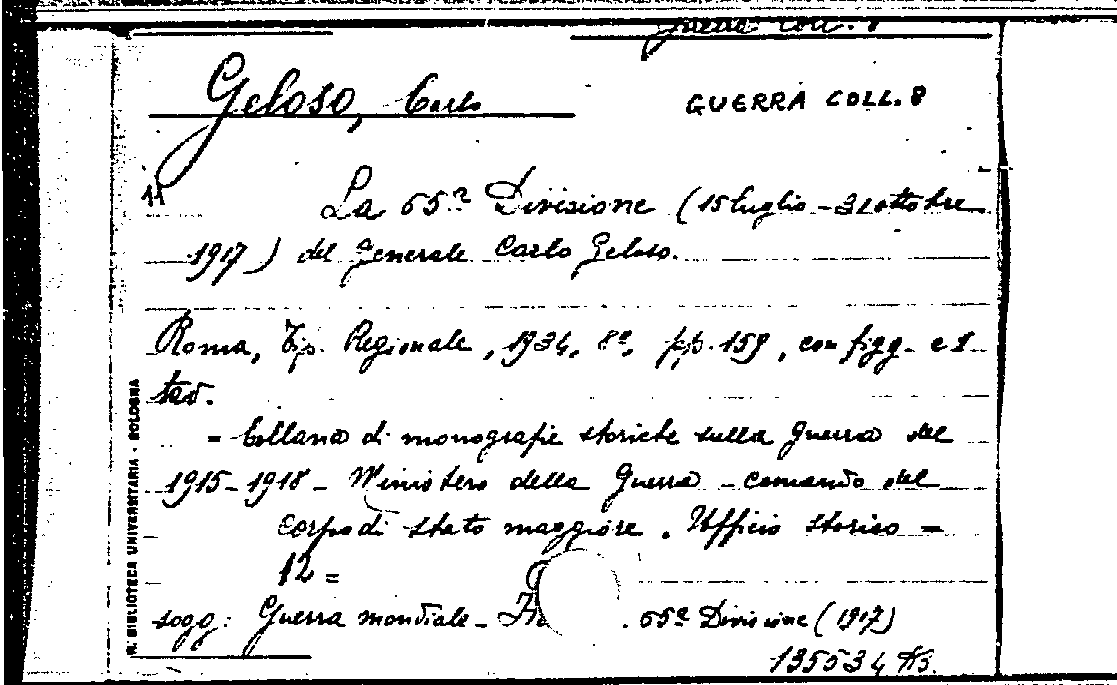 Guerra Coll. 8
Geloso, Carlo
GUERRA COLL. 8
11
La 65ª Divisione (15 luglio - 31 ottobre
1917) del generale Carlo Geloso.
Roma, Tip. Regionale, 1934, 8º, pp. 159, con figg. e 1
tav.
= Collana di monografie storiche sulla guerra del
1915-1918 - Ministero della Guerra - comando del
corpo di stato maggiore. Ufficio storico =
12 =
sogg: Guerra mondiale - 65ª Divisione (1917)
135534
R. BIBLIOTECA UNIVERSITARIA - BOLOGNA